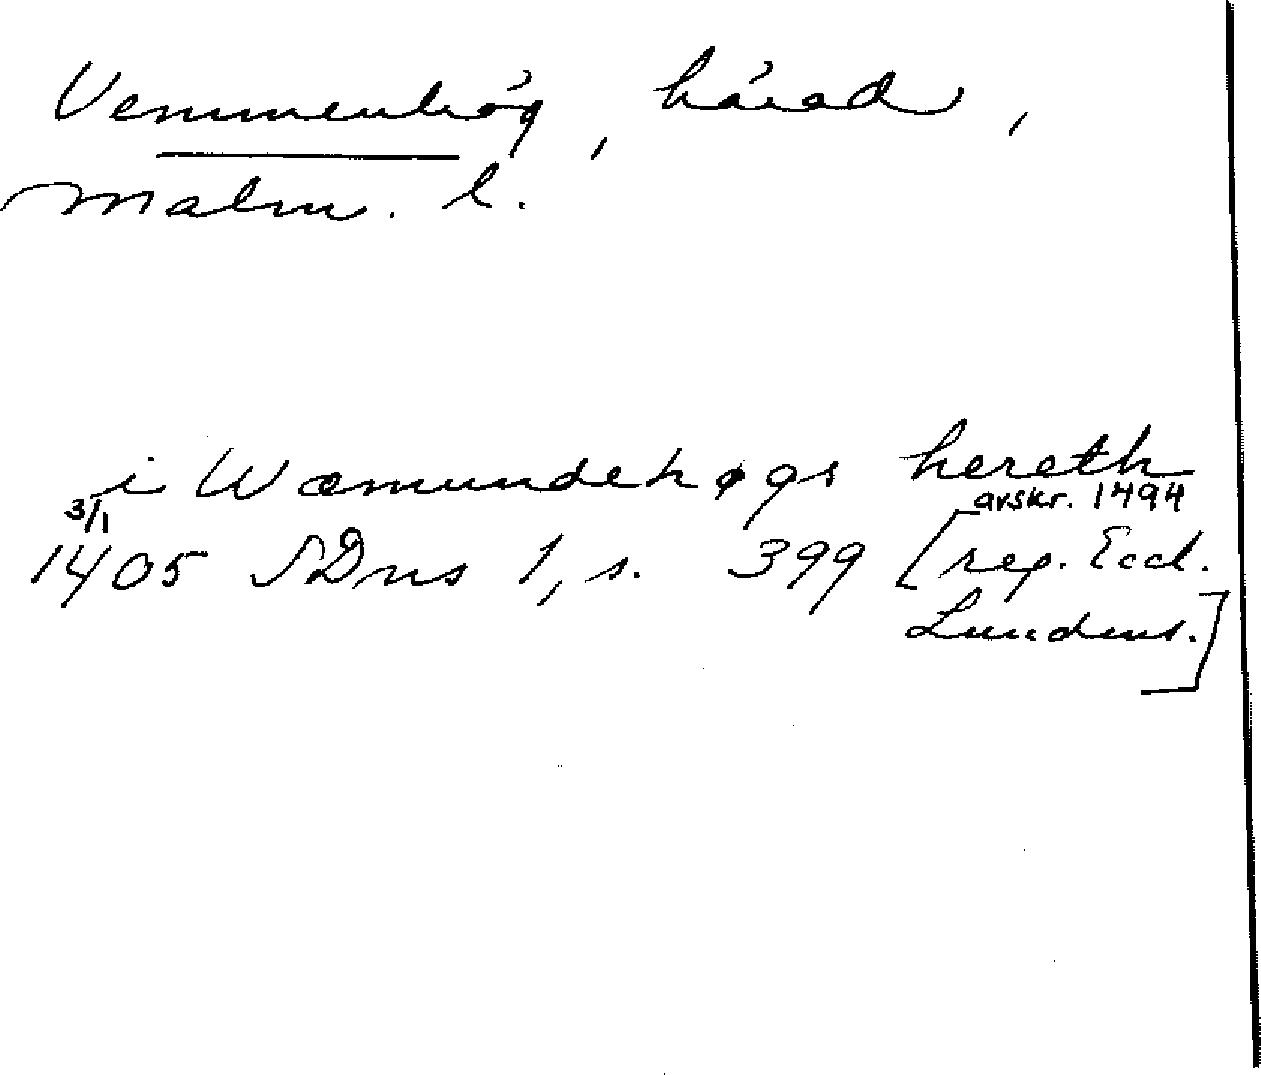 Vemmenhög, härad,
Malm. l.
i Wæmundehøgs hereth
3/1 avskr. 1494
1405 SDns 1, s. 399 [reg. Eccl.
Lundens.]